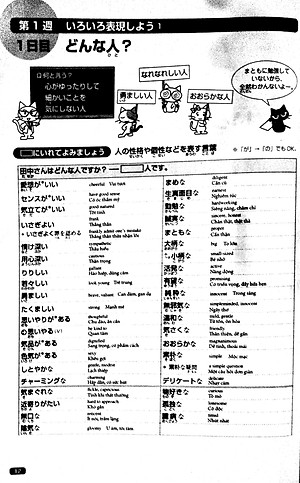 第1週 いろいろ表現しよう 1
1日目 どんな人？
何と言う？
心がゆったりして
細かいことを
気にしない人
勇ましい人
なれなれしい人
おおらかな人
まともに勉強して
いないから、
にいれてみましょう 人の性格や個性などを表す言葉
※「が」→「の」でもOK.
田中さんはどんな人ですか？ 人です。
愛想が*いい
cheerful Vui tươi
センスが*いい
have good sense
Có óc thẩm mỹ
気立てが*いい
good natured
Tốt tính
いさぎよい
frank
Thẳng thắn
情け深い
sympathetic
Thấu hiểu
用心深い
cautious
Thận trọng
りりしい
gallant
若々しい
look young Trẻ trung
勇ましい
brave, valiant Can đảm, gan dạ
たくましい
strong Mạnh mẽ
思いやりが*ある
thoughtful
Chu đáo, ân cần
be kind to
Quan tâm
気品が*ある
dignified
Sang trọng, có phẩm cách
色気が*ある
sexy
Khêu gợi
しとやかな
gentle, modest
Lịch thiệp
チャーミングな
charming
Hấp dẫn, có sức hút
気まぐれな
fickle, capricious
Tính khí thất thường
近寄りがたい
hard to approach
Khó gần
無口な
reticent
Ít nói, trầm lặng
陰気な
gloomy U ám, tối tăm
まめな
diligent
Cần cù
生真面目な
earnest
Nghiêm túc
勤勉な
hardworking
Siêng năng, chăm chỉ
誠実な
sincere, honest
Chân thật, thật thà
まともな
proper
Cẩn thận
大柄な
big To lớn
小柄な
small-sized
Bé nhỏ
活発な
active
Năng động
有望な
promising
Có triển vọng, đầy hứa hẹn
純粋な
innocent Trong sáng
無邪気な
simpleminded, innocent
Ngây thơ
温和な
mild, gentle
Từ tốn, ôn hòa
気さくな
friendly
Thân thiện, dễ gần
おおらかな
magnanimous
Dễ tính, thoải mái
素朴な
simple Mộc mạc
※ 素朴な疑問
a simple question
Một câu hỏi đơn giản
デリケートな
delicate
Nhạy cảm
物好きな
curious
Tò mò
孤独な
lonesome
Cô độc
臆病な
timid
Nhút nhát
12